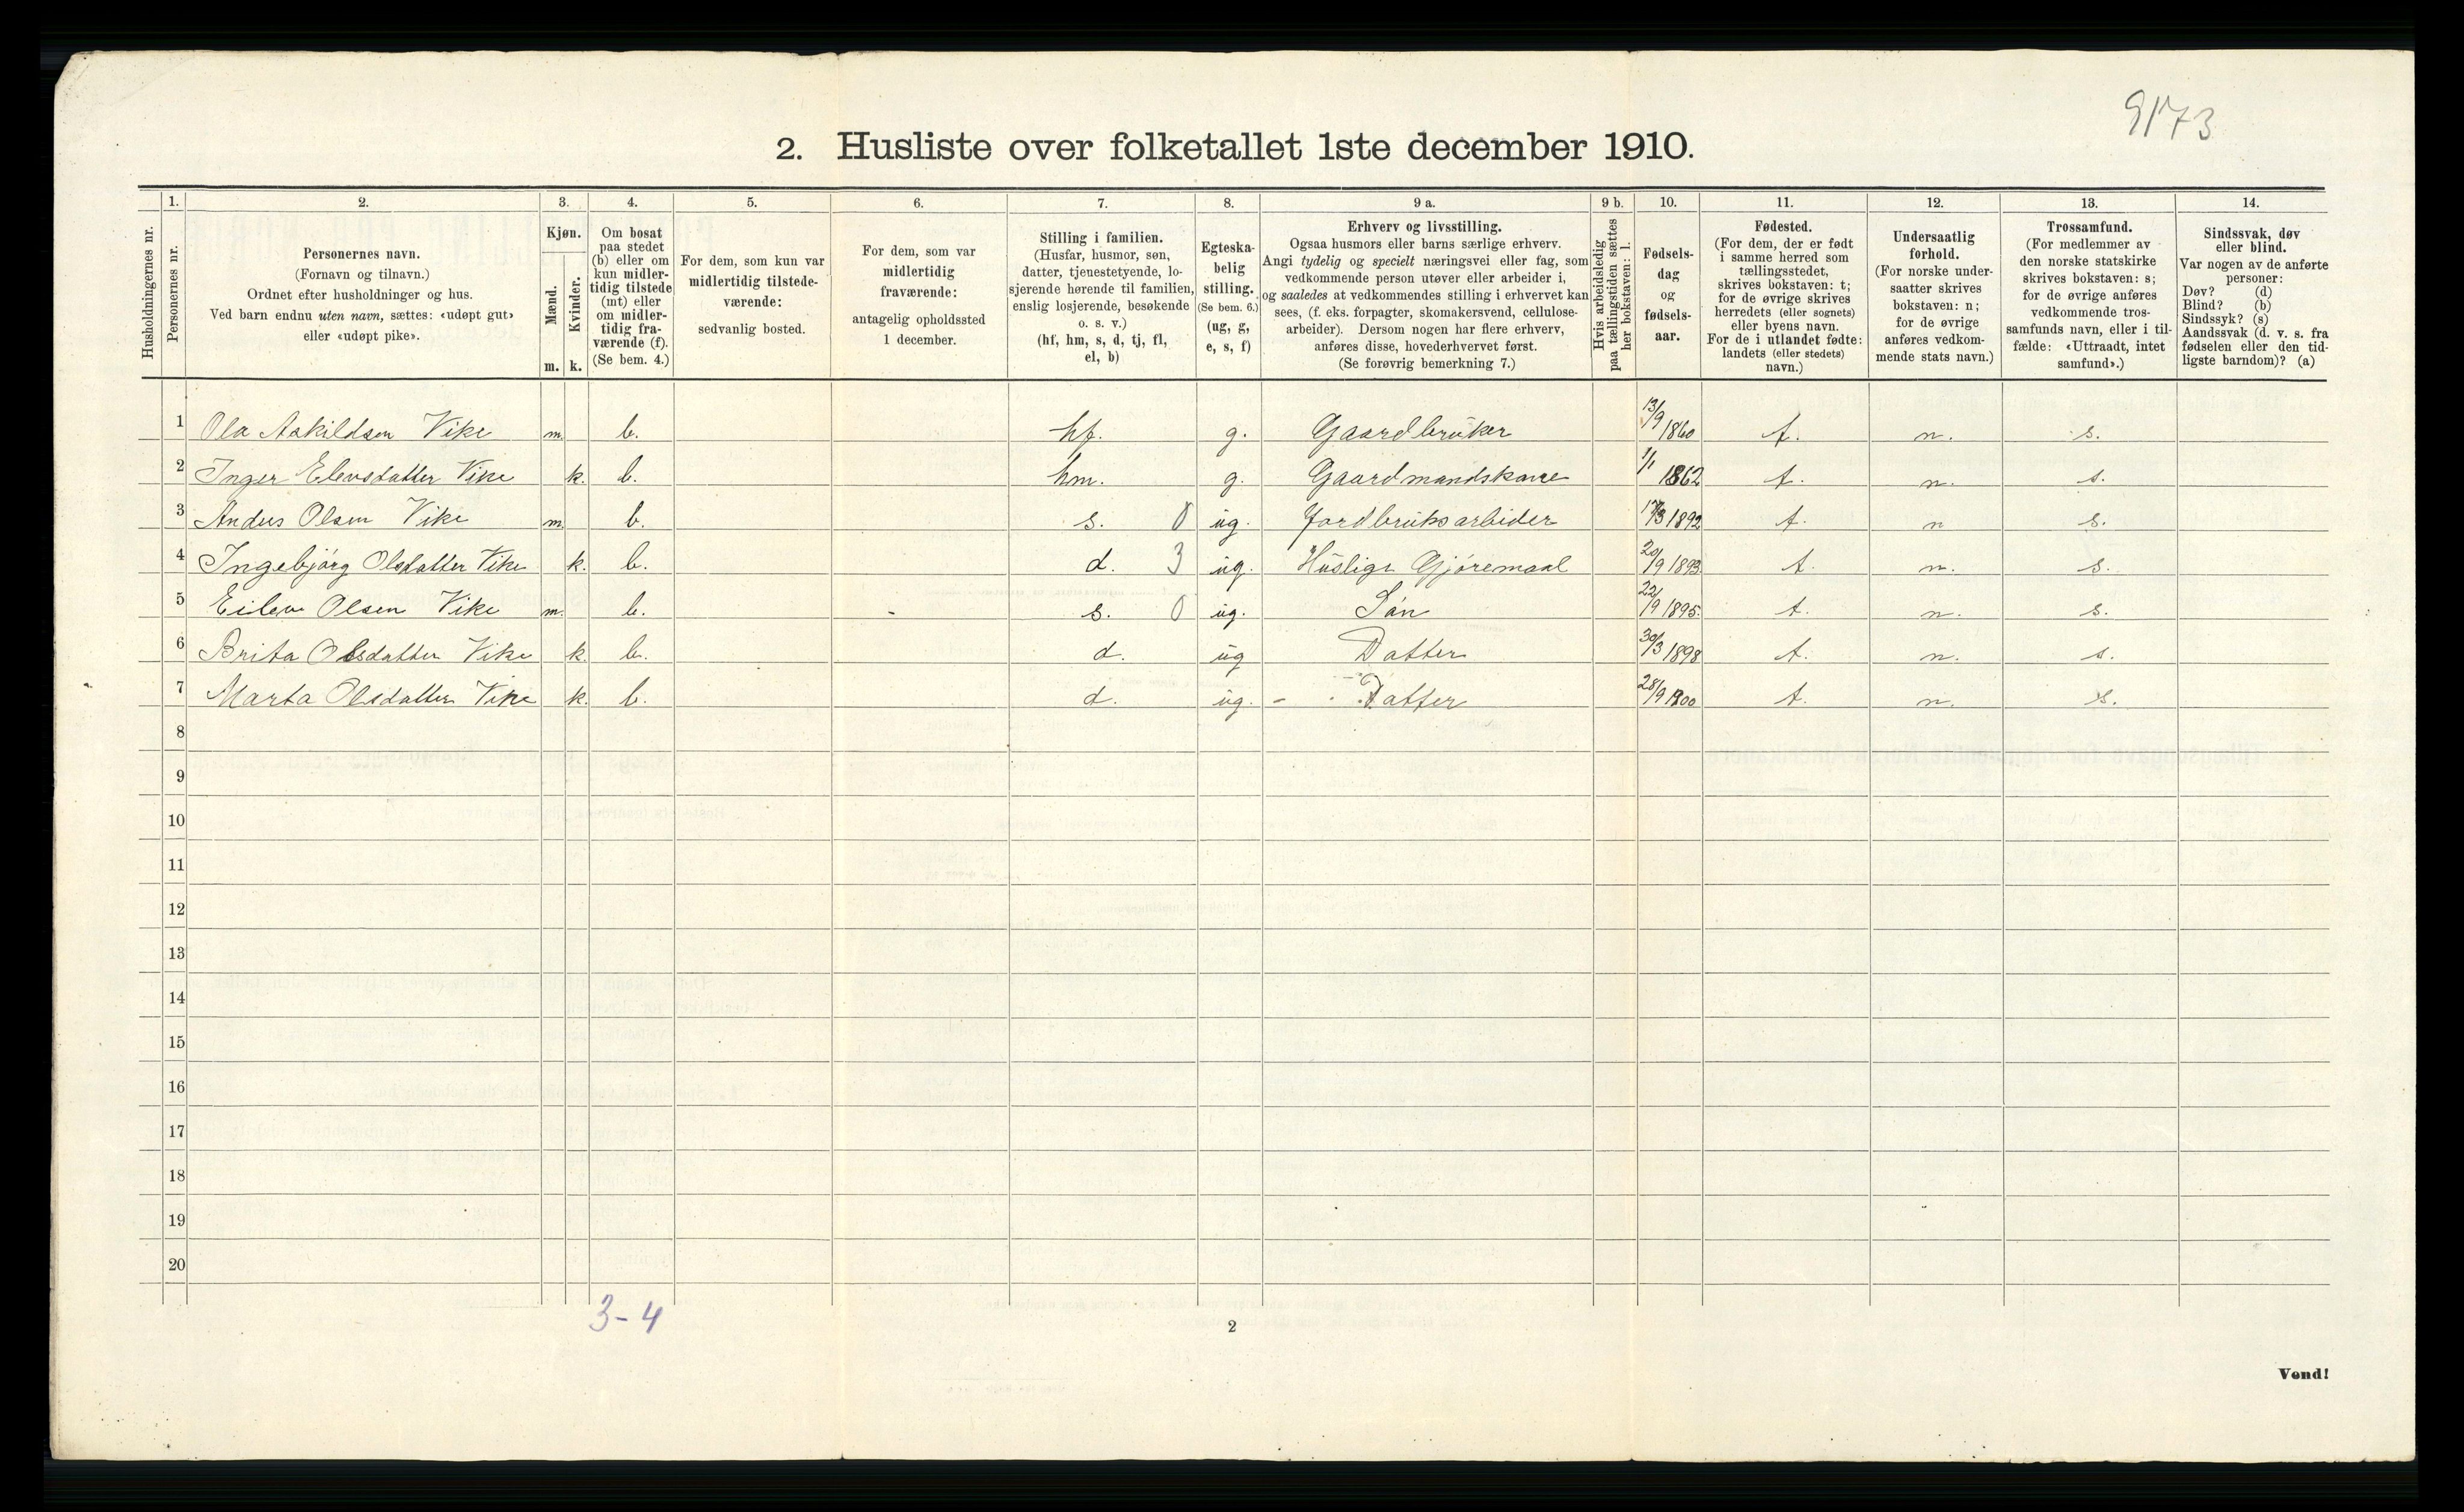 9173
2. Husliste over folketallet 1ste december 1910.
Husholdningernes nr.
1. Personernes nr.
2. Personernes navn. (Fornavn og tilnavn.) Ordnet efter husholdninger og hus. Ved barn endnu uten navn, sættes: «udøpt gut» eller «udøpt pike».
3. Kjøn. Mænd. m. Kvinder. k.
4. Om bosat paa stedet (b) eller om kun midlertidig tilstede (mt) eller om midlertidig fraværende (f). (Se bem. 4.)
5. For dem, som kun var midlertidig tilstedeværende: sedvanlig bosted.
6. For dem, som var midlertidig fraværende: antagelig opholdssted 1 december.
7. Stilling i familien. (Husfar, husmor, søn, datter, tjenestetyende, losjerende hørende til familien, enslig losjerende, besøkende o. s. v.) (hf, hm, s, d, tj, fl, el, b)
8. Egteskabelig stilling. (Se bem. 6.) (ug, g, e, s, f)
9 a. Erhverv og livsstilling. Ogsaa husmors eller barns særlige erhverv. Angi tydelig og specielt næringsvei eller fag, som vedkommende person utøver eller arbeider i, og saaledes at vedkommendes stilling i erhvervet kan sees, (f. eks. forpagter, skomakersvend, cellulosearbeider). Dersom nogen har flere erhverv, anføres disse, hovederhvervet først. (Se forøvrig bemerkning 7.)
9 b. Hvis arbeidsledig paa tællingstiden sættes her bokstaven: l.
10. Fødselsdag og fødselsaar.
11. Fødested. (For dem, der er født i samme herred som tællingsstedet, skrives bokstaven: t; for de øvrige skrives herredets (eller sognets) eller byens navn. For de i utlandet fødte: landets (eller stedets) navn.)
12. Undersaatlig forhold. (For norske undersaatter skrives bokstaven: n; for de øvrige anføres vedkommende stats navn.)
13. Trossamfund. (For medlemmer av den norske statskirke skrives bokstaven: s; for de øvrige anføres vedkommende trossamfunds navn, eller i tilfælde: «Uttraadt, intet samfund».)
14. Sindssvak, døv eller blind. Var nogen av de anførte personer: Døv? (d) Blind? (b) Sindssyk? (s) Aandssvak (d. v. s. fra fødselen eller den tidligste barndom)? (a)
1 Ola Askildsen Vike m. b. hf. g. Gaardbruker 13/9 1860 t. n. s.
2 Inger Elevsdatter Vike k. b. hm. g. Gaardmandskone 1/1 1862 t. n. s.
3 Anders Olsen Vike m. b. s. 0 ug. Jordbruksarbider 17/3 1892 t. n s.
4 Ingebjörg Olsdatter Vike k. b. d. 3 ug. Huslige Gjöremaal 20/9 1893. t. n. s.
5 Eilev Olsen Vike m. b. - s. 0 ug. Sön 22/9 1895. t. n. s.
6 Brita Olsdatter Vike k. b. d. ug Datter 30/3 1898 t. n. s.
7 Marta Olsdatter Vike k. b. d. ug. - Datter 28/9 1900 t. n. s.
8
9
10
11
12
13
14
15
16
17
18
19
20
3-4
2
Vend!